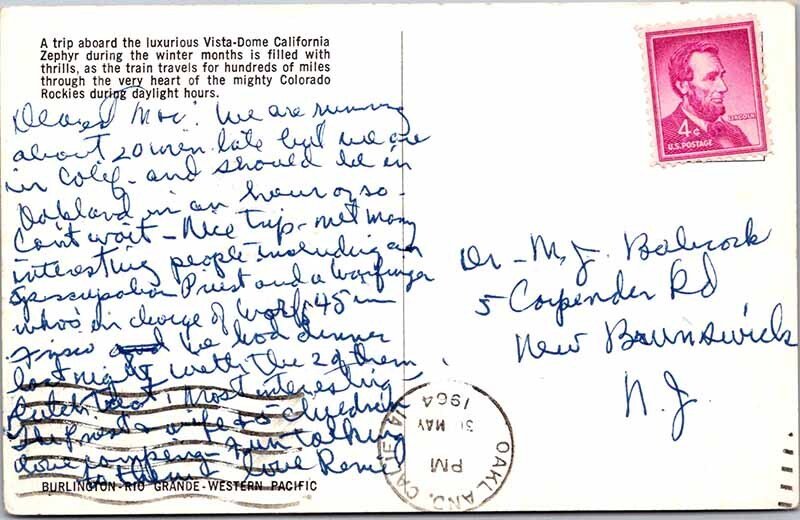 A trip aboard the luxurious Vista-Dome California
Zephyr during the winter months is filled with
thrills, as the train travels for hundreds of miles
through the very heart of the mighty Colorado
Rockies during daylight hours.
Dearest We are running
about 20 min. late but we are
in Calif. and should be in
Oakland in an hour or so -
Can't wait - Nice trip - met many
interesting people including an
Priest and a Warfinger
who's in charge of 45 in
Frisco We had dinner
last night with the 2 of them
Dutch treat! Most interesting
The Priest & wife & 5 children
love camping - Fun talking
to them Love
BURLINGTON-RIO GRANDE-WESTERN PACIFIC
LINCOLN
4¢
U.S. POSTAGE
Dr - M. J. Babcock
5 Carpender Rd
New Brunswick
N.J.
OAKLAND, CALIF.
PM
31 MAY
1964